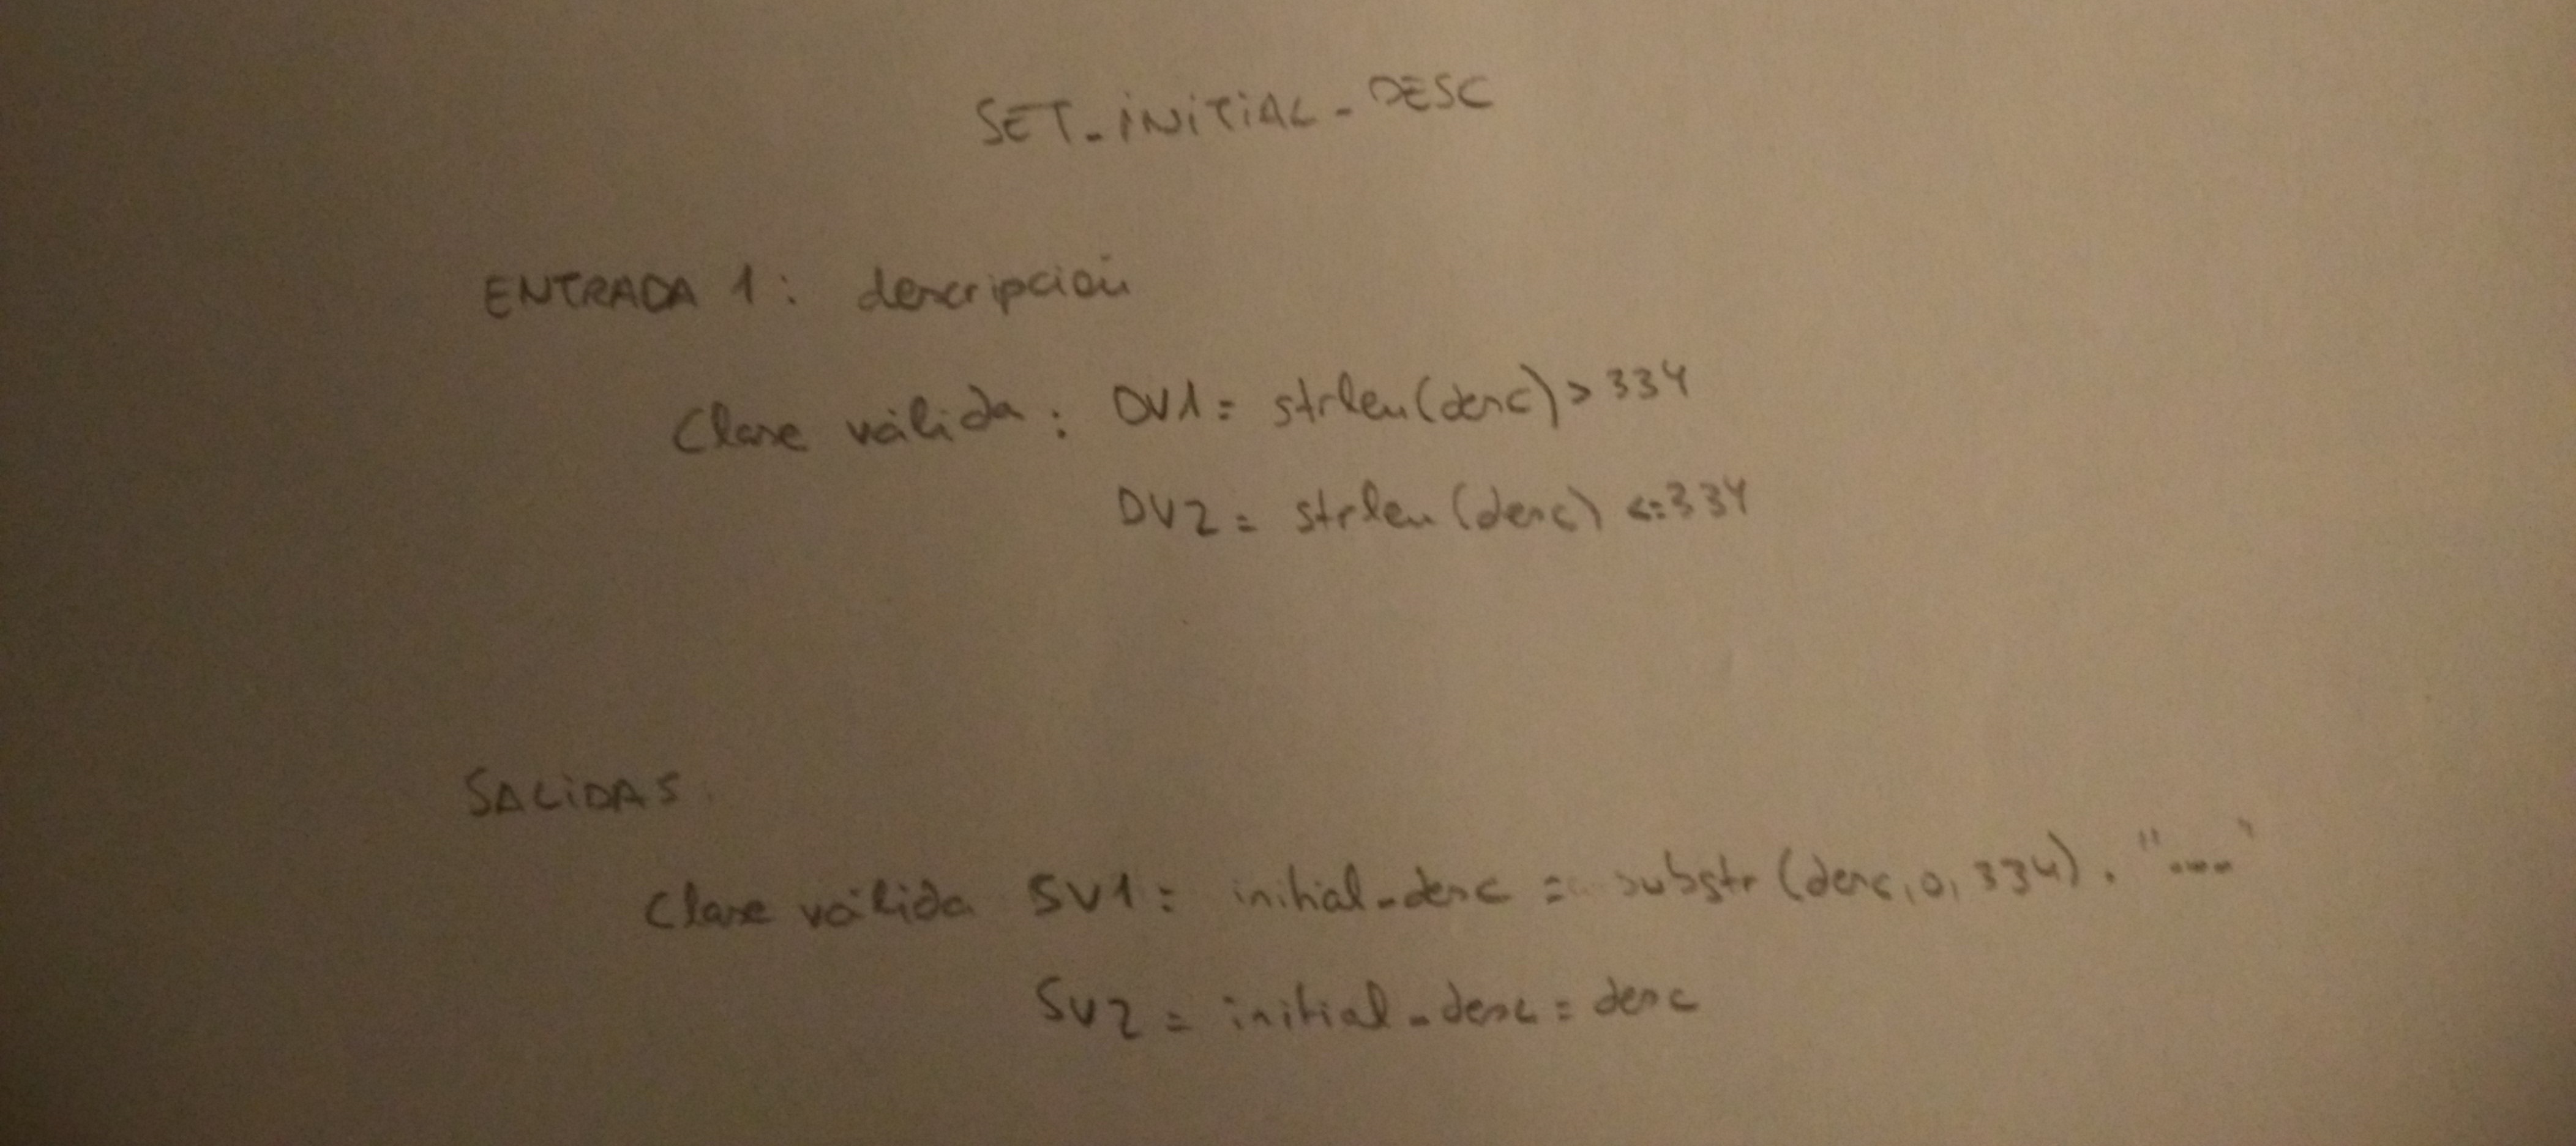 SET_INITIAL_DESC
ENTRADA 1: descripción
Clase válida: DV1= strlen(desc)>334
DV2= strlen(desc) <=334
SALIDAS.
Clase válida SV1= initial_desc = substr(desc,0,334). "...."
SV2 = initial_desc = desc